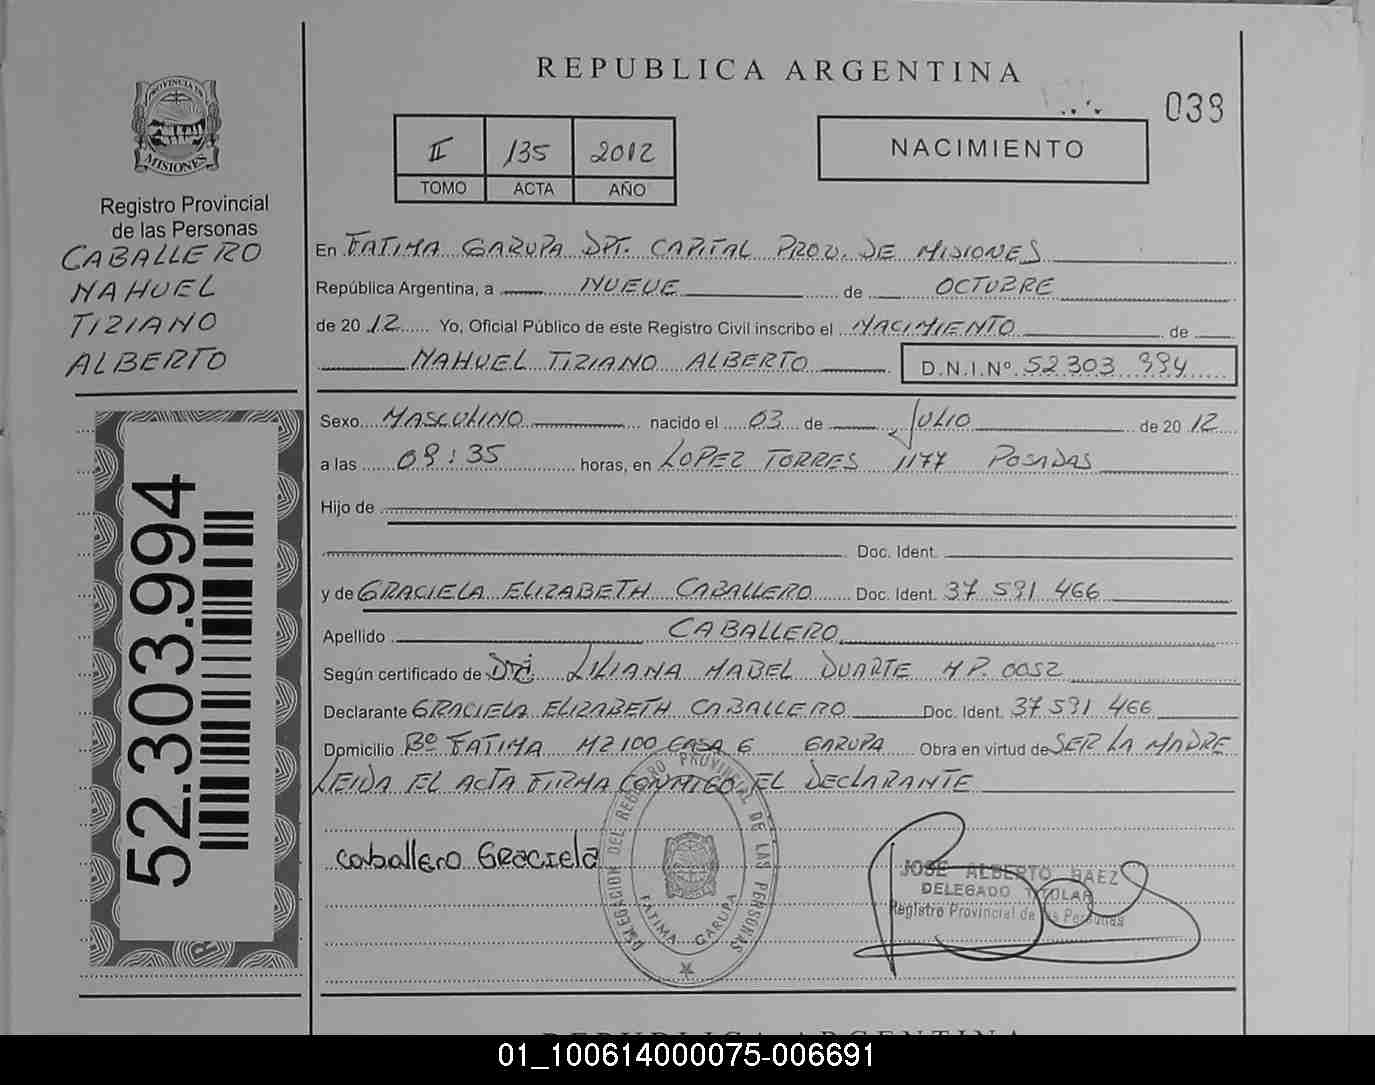 PROVINCIA DE
MISIONES
Registro Provincial
de las Personas
CABALLERO
NAHUEL
TIZIANO
ALBERTO
52.303.994
REPUBLICA ARGENTINA
039
II 135 2012
TOMO ACTA AÑO
NACIMIENTO
En FATIMA GARUPA DPT. CAPITAL PROV. DE MISIONES
República Argentina, a NUEVE de OCTUBRE
de 20 12 Yo, Oficial Público de este Registro Civil inscribo el NACIMIENTO de
NAHUEL TIZIANO ALBERTO D.N.I.Nº 52 303 994
Sexo MASCULINO nacido el 03 de JULIO de 20 12
a las 09:35 horas, en LOPEZ TORRES 1177 POSADAS
Hijo de
Doc. Ident.
y de GRACIELA ELIZABETH CABALLERO Doc. Ident. 37 591 466
Apellido CABALLERO
Según certificado de Dra. LILIANA MABEL DUARTE MP. 0052
Declarante GRACIELA ELIZABETH CABALLERO Doc. Ident. 37 591 466
Domicilio Bº FATIMA MZ 100 CASA 6 GARUPA Obra en virtud de SER LA MADRE
LEIDA EL ACTA FIRMA CONMIGO EL DECLARANTE
caballero Graciela
DELEGACION DEL REGISTRO PROVINCIAL DE LAS PERSONAS
FATIMA GARUPA
JOSE ALBERTO BAEZ
DELEGADO TITULAR
Registro Provincial de las Personas
REPUBLICA ARGENTINA
01_100614000075-006691